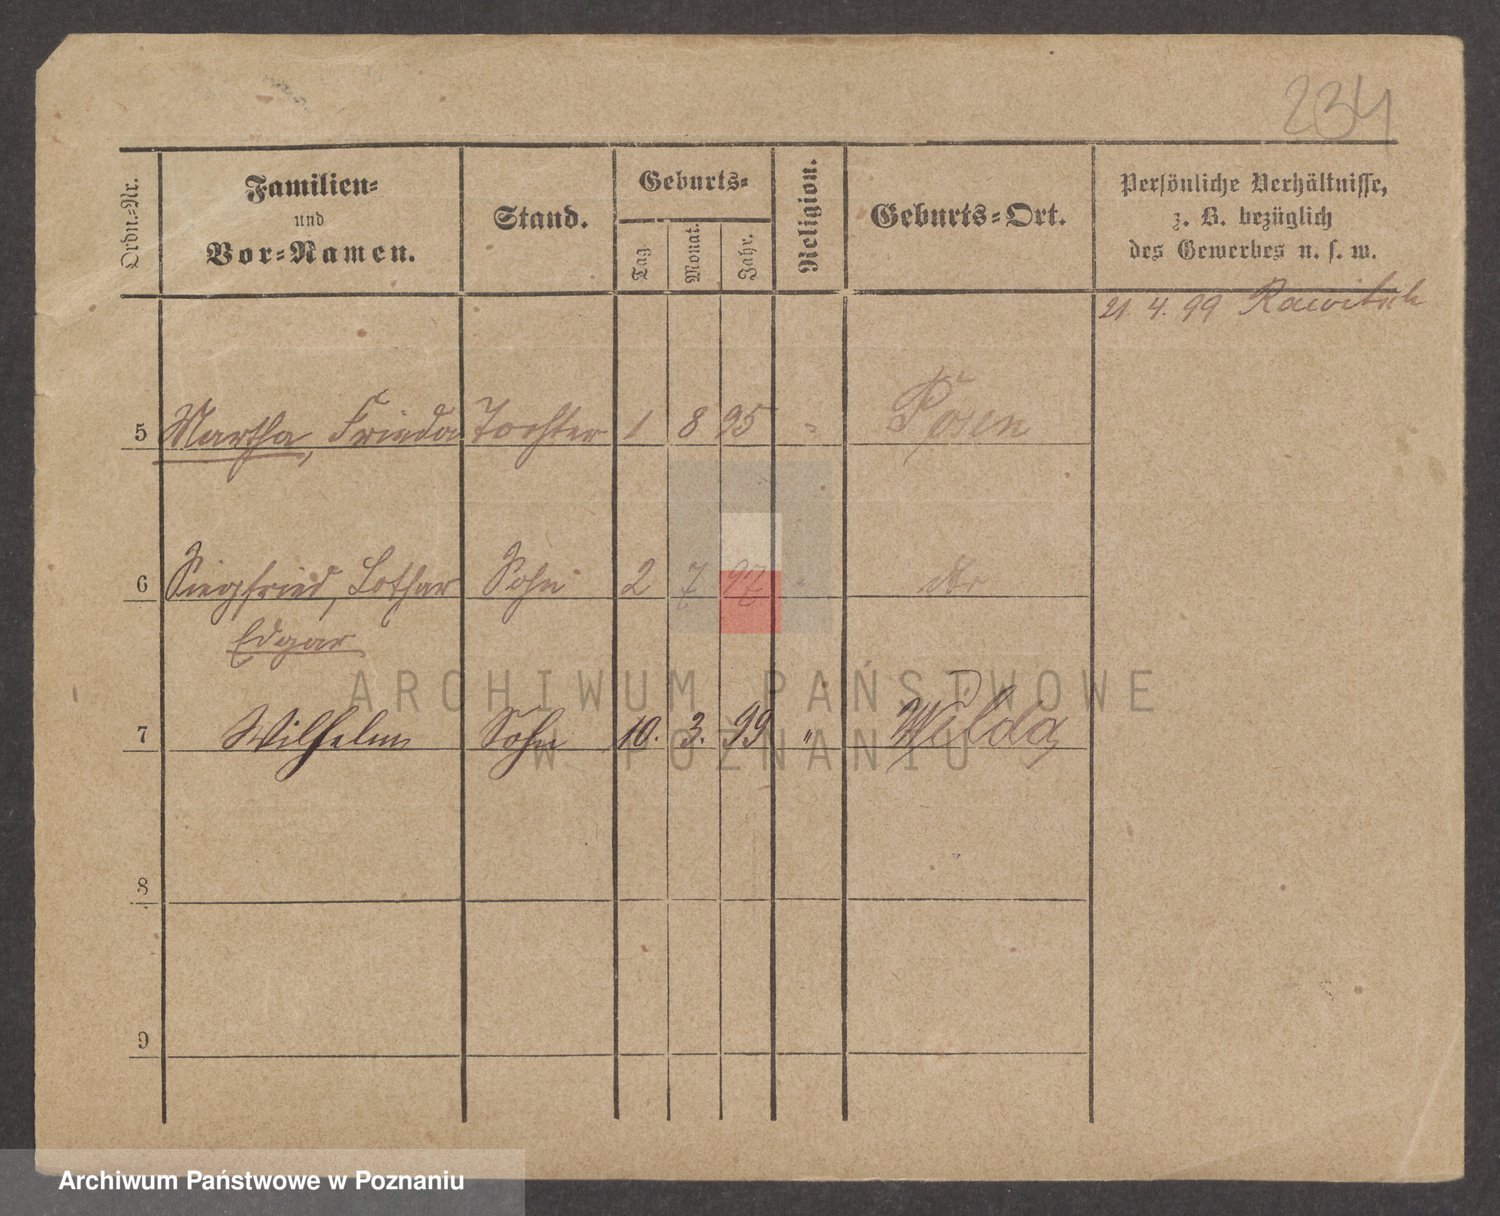 234
Ordn.-Nr. Familien- und Vor-Namen. Stand. Geburts- Tag. Monat. Jahr. Religion. Geburts-Ort. Persönliche Verhältnisse, z. B. bezüglich des Gewerbes u. s. w.
21. 4. 99 Rawitsch
5 Martha, Frieda Tochter 1 8 95 " Posen
6 Siegfried, Lothar Sohn 2 7 97 " dto
Edgar
ARCHIWUM PAŃSTWOWE
7 Wilhelm Sohn 10. 3. 99 " Wilda
W POZNANIU
8
9
Archiwum Państwowe w Poznaniu